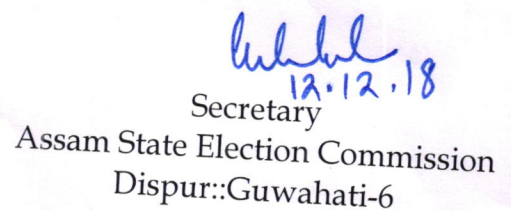 12.12.18
Secretary
Assam State Election Commission
Dispur::Guwahati-6